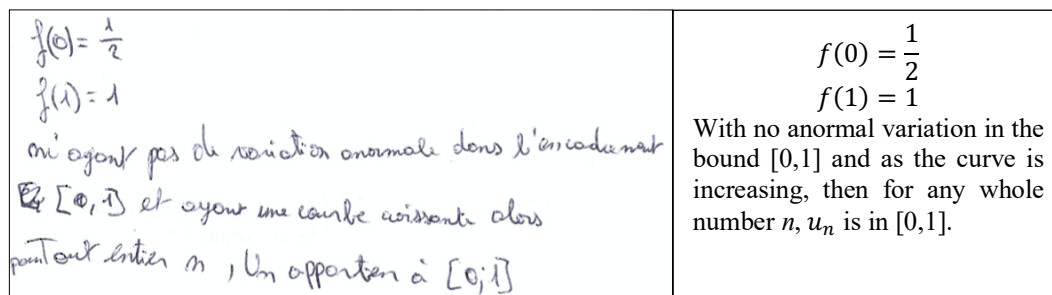 f(0) = 1/2
f(1) = 1
n'ayant pas de variation anormale dans l'encadrement
[0,1] et ayant une courbe croissante alors
pour tout entier n, Un appartien à [0;1]
f(0) = 1/2
f(1) = 1
With no anormal variation in the
bound [0,1] and as the curve is
increasing, then for any whole
number n, uₙ is in [0,1].